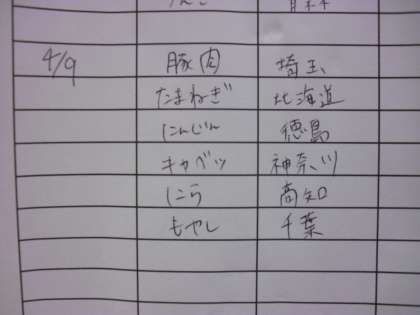 4/9 豚肉 埼玉
たまねぎ 北海道
にんじん 徳島
キャベツ 神奈川
にら 高知
もやし 千葉